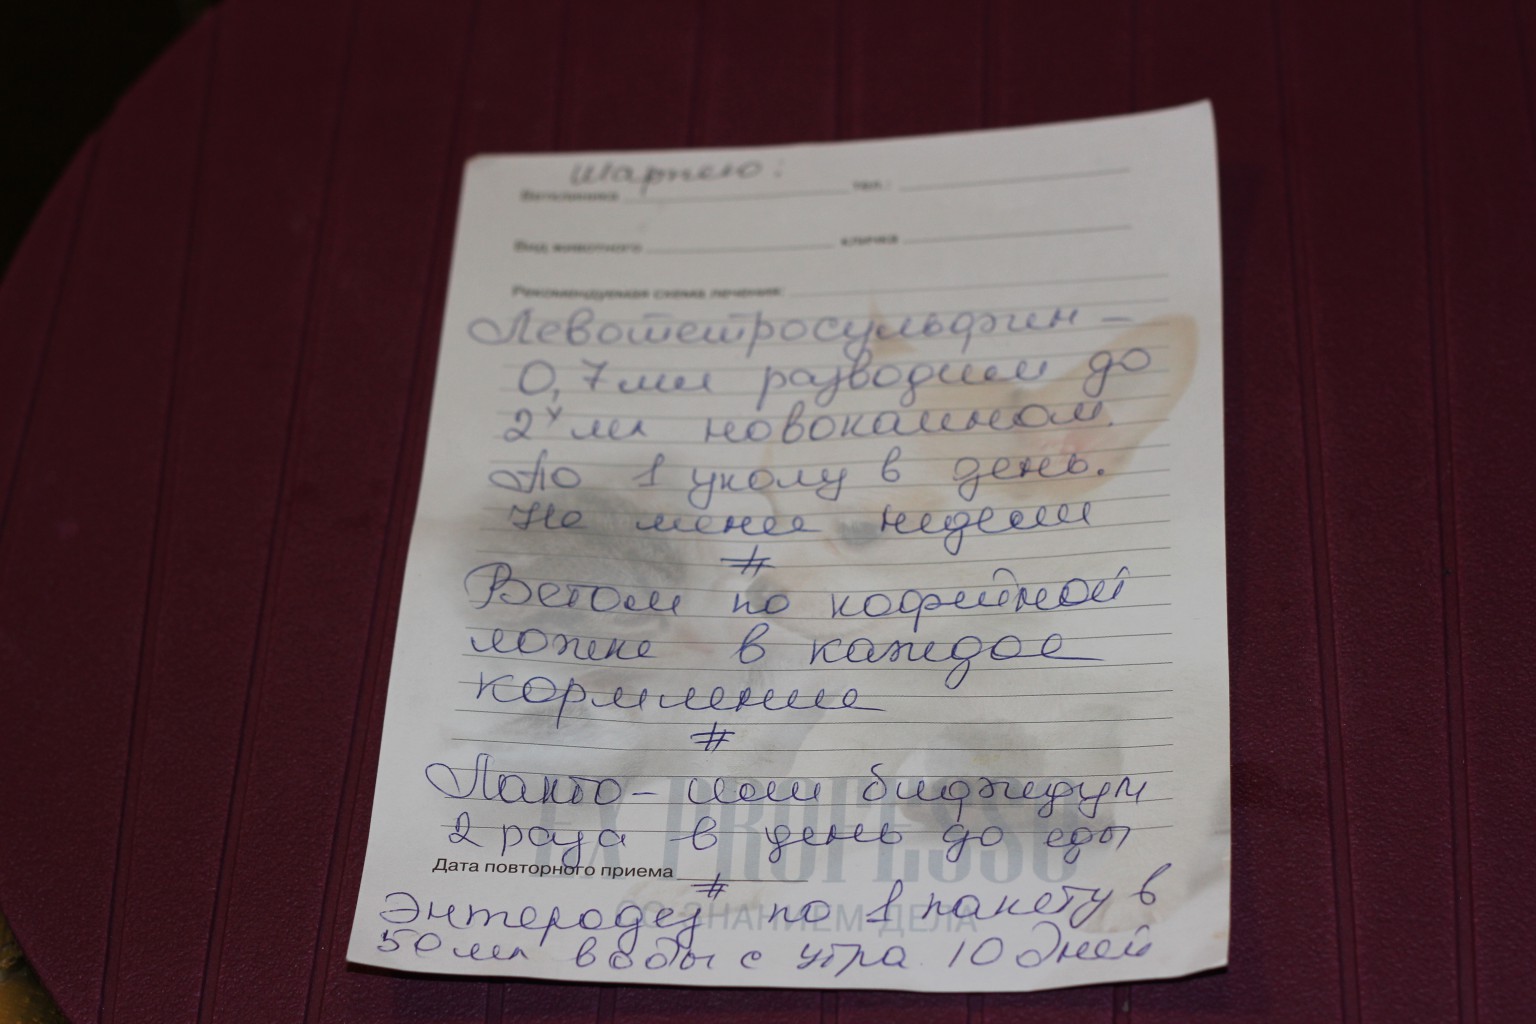 Шарпею:
Ветклиника тел.:
Вид животного кличка
Рекомендуемая схема лечения:
Левотетросульфин -
0,7 мл разводим до
2х мл новокаином.
По 1 уколу в день.
Не менее недели
#
Ветом по кофейной
ложке в каждое
кормление
#
Лакто- или бифидум
2 раза в день до еды
Дата повторного приема
#
Энтеродез по 1 пакету в
50 мл воды с утра 10 дней
EX PROFESSO
СО ЗНАНИЕМ ДЕЛА